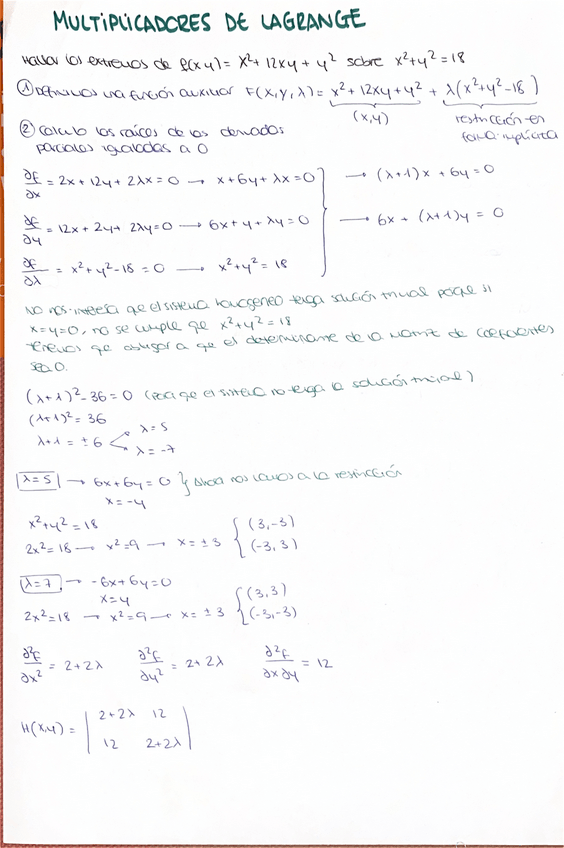 MULTIPLICADORES DE LAGRANGE
Hallar los extremos de f(x,y) = x²+12xy+y² sobre x²+y²=18
① Definimos una función auxiliar F(x,y,λ) = x²+12xy+y² + λ(x²+y²-18)
(x,y) restricción en
forma implícita
② Calculo las raíces de las derivadas
parciales igualadas a 0
∂F/∂x = 2x+12y+2λx=0 → x+6y+λx=0 → (λ+1)x+6y=0
∂F/∂y = 12x+2y+2λy=0 → 6x+y+λy=0 → 6x+(λ+1)y=0
∂F/∂λ = x²+y²-18=0 → x²+y²=18
No nos interesa que el sistema homogeneo tenga solución trivial porque si
x=y=0, no se cumple que x²+y²=18
Tenemos que obligar a que el determinante de la matriz de coeficientes
sea 0.
(λ+1)²-36=0 (para que el sistema no tenga la solución trivial)
(λ+1)²=36
λ+1=±6 λ=5
λ=-7
λ=5 → 6x+6y=0 } Ahora nos vamos a la restricción
x=-y
x²+y²=18
2x²=18 → x²=9 → x=±3 { (3,-3)
(-3,3)
λ=7 → -6x+6y=0
x=y
2x²=18 → x²=9 → x=±3 { (3,3)
(-3,-3)
∂²F/∂x² = 2+2λ ∂²F/∂y² = 2+2λ ∂²F/∂x∂y = 12
H(x,y) = | 2+2λ 12 |
| 12 2+2λ |